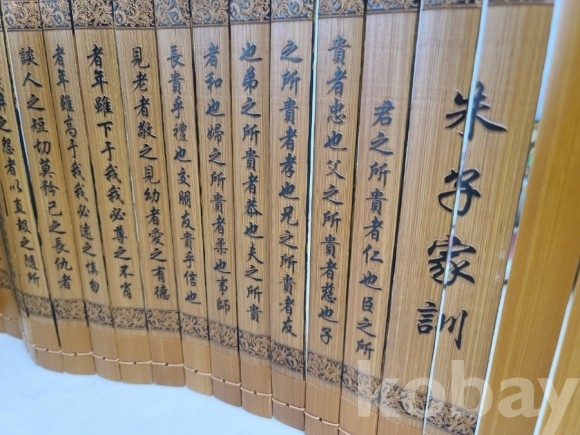 朱子家訓
君之所貴者仁也臣之所
貴者忠也父之所貴者慈也子
之所貴者孝也兄之所貴者友
也弟之所貴者恭也夫之所貴
者和也婦之所貴者柔也事師
長貴乎禮也交朋友貴乎信也
見老者敬之見幼者愛之有德
者年雖下于我我必尊之不肖
者年雖高于我我必遠之慎勿
談人之短切莫矜己之長仇者
之怨者以直報之隨所
kobay